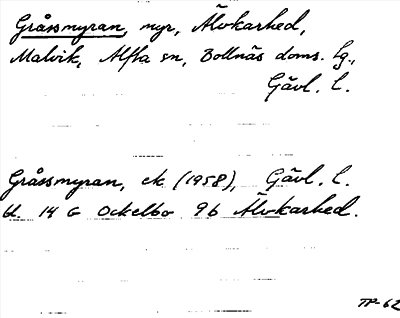 Gråssmyran, myr, Älvkarhed,
Malvik, Alfta sn, Bollnäs doms. lg.,
Gävl. l.
Gråssmyran, ek (1958), Gävl. l.
bl. 14 G Ockelbo 9b Älvkarhed.
TP-62